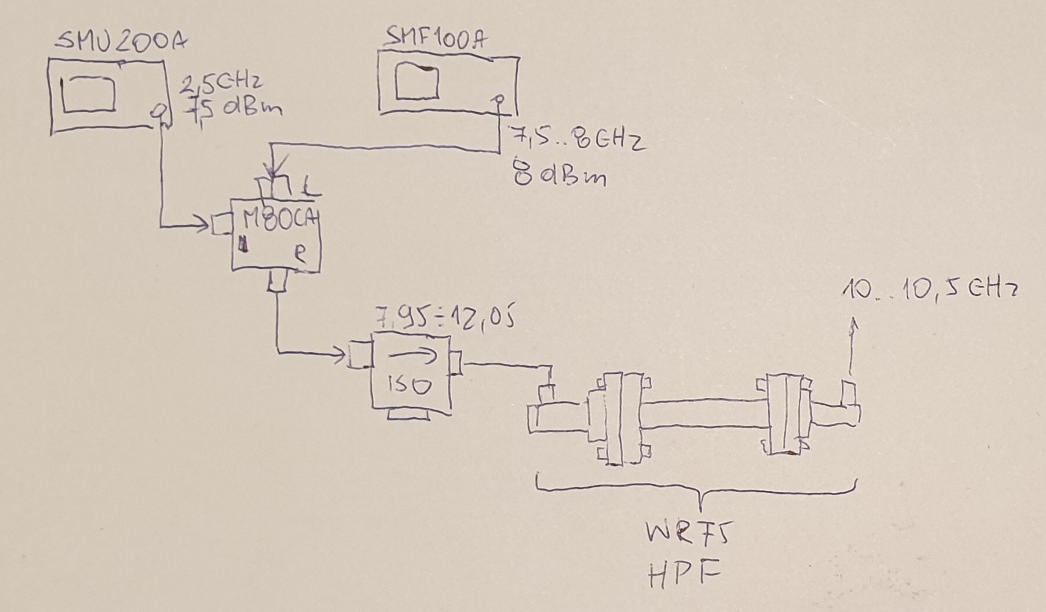 SMU200A
2,5GHz
7,5 dBm
SMF100A
7,5..8GHz
8 dBm
L
M80CA
R
7,95÷12,05
ISO
10..10,5GHz
WR75
HPF